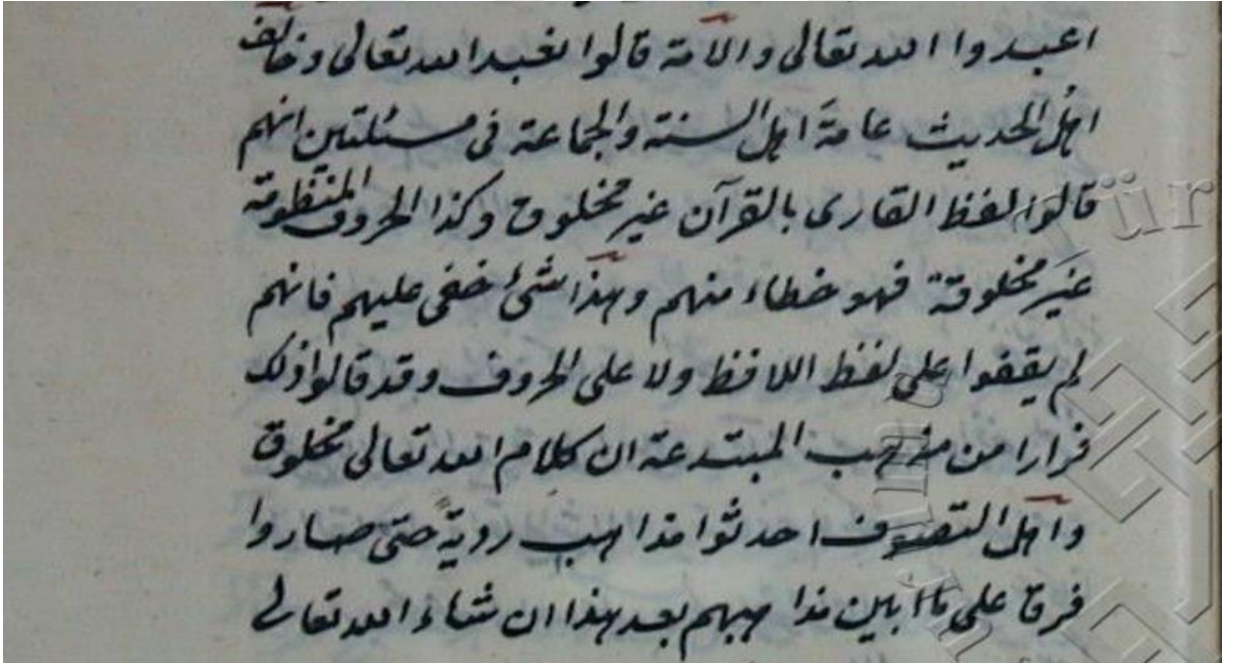 اعبدوا الله تعالى والامة قالوا نعبد الله تعالى وخالف
اهل الحديث عامة اهل السنة والجماعة فى مسئلتين انهم
قالوا لفظ القارى بالقرآن غير مخلوق وكذا الحروف المنظومة
غير مخلوقة فهو خطاء منهم وهذا شئ خفى عليهم فانهم
لم يقفوا على لفظ اللافظ ولا على الحروف وقد قالوا ذلك
فرارا من مذهب المبتدعة ان كلام الله تعالى مخلوق
واهل التصوف احدثوا مذاهب رديةً حتى صاروا
فرقا على ما ابين مذاهبهم بعد هذا ان شاء الله تعالى